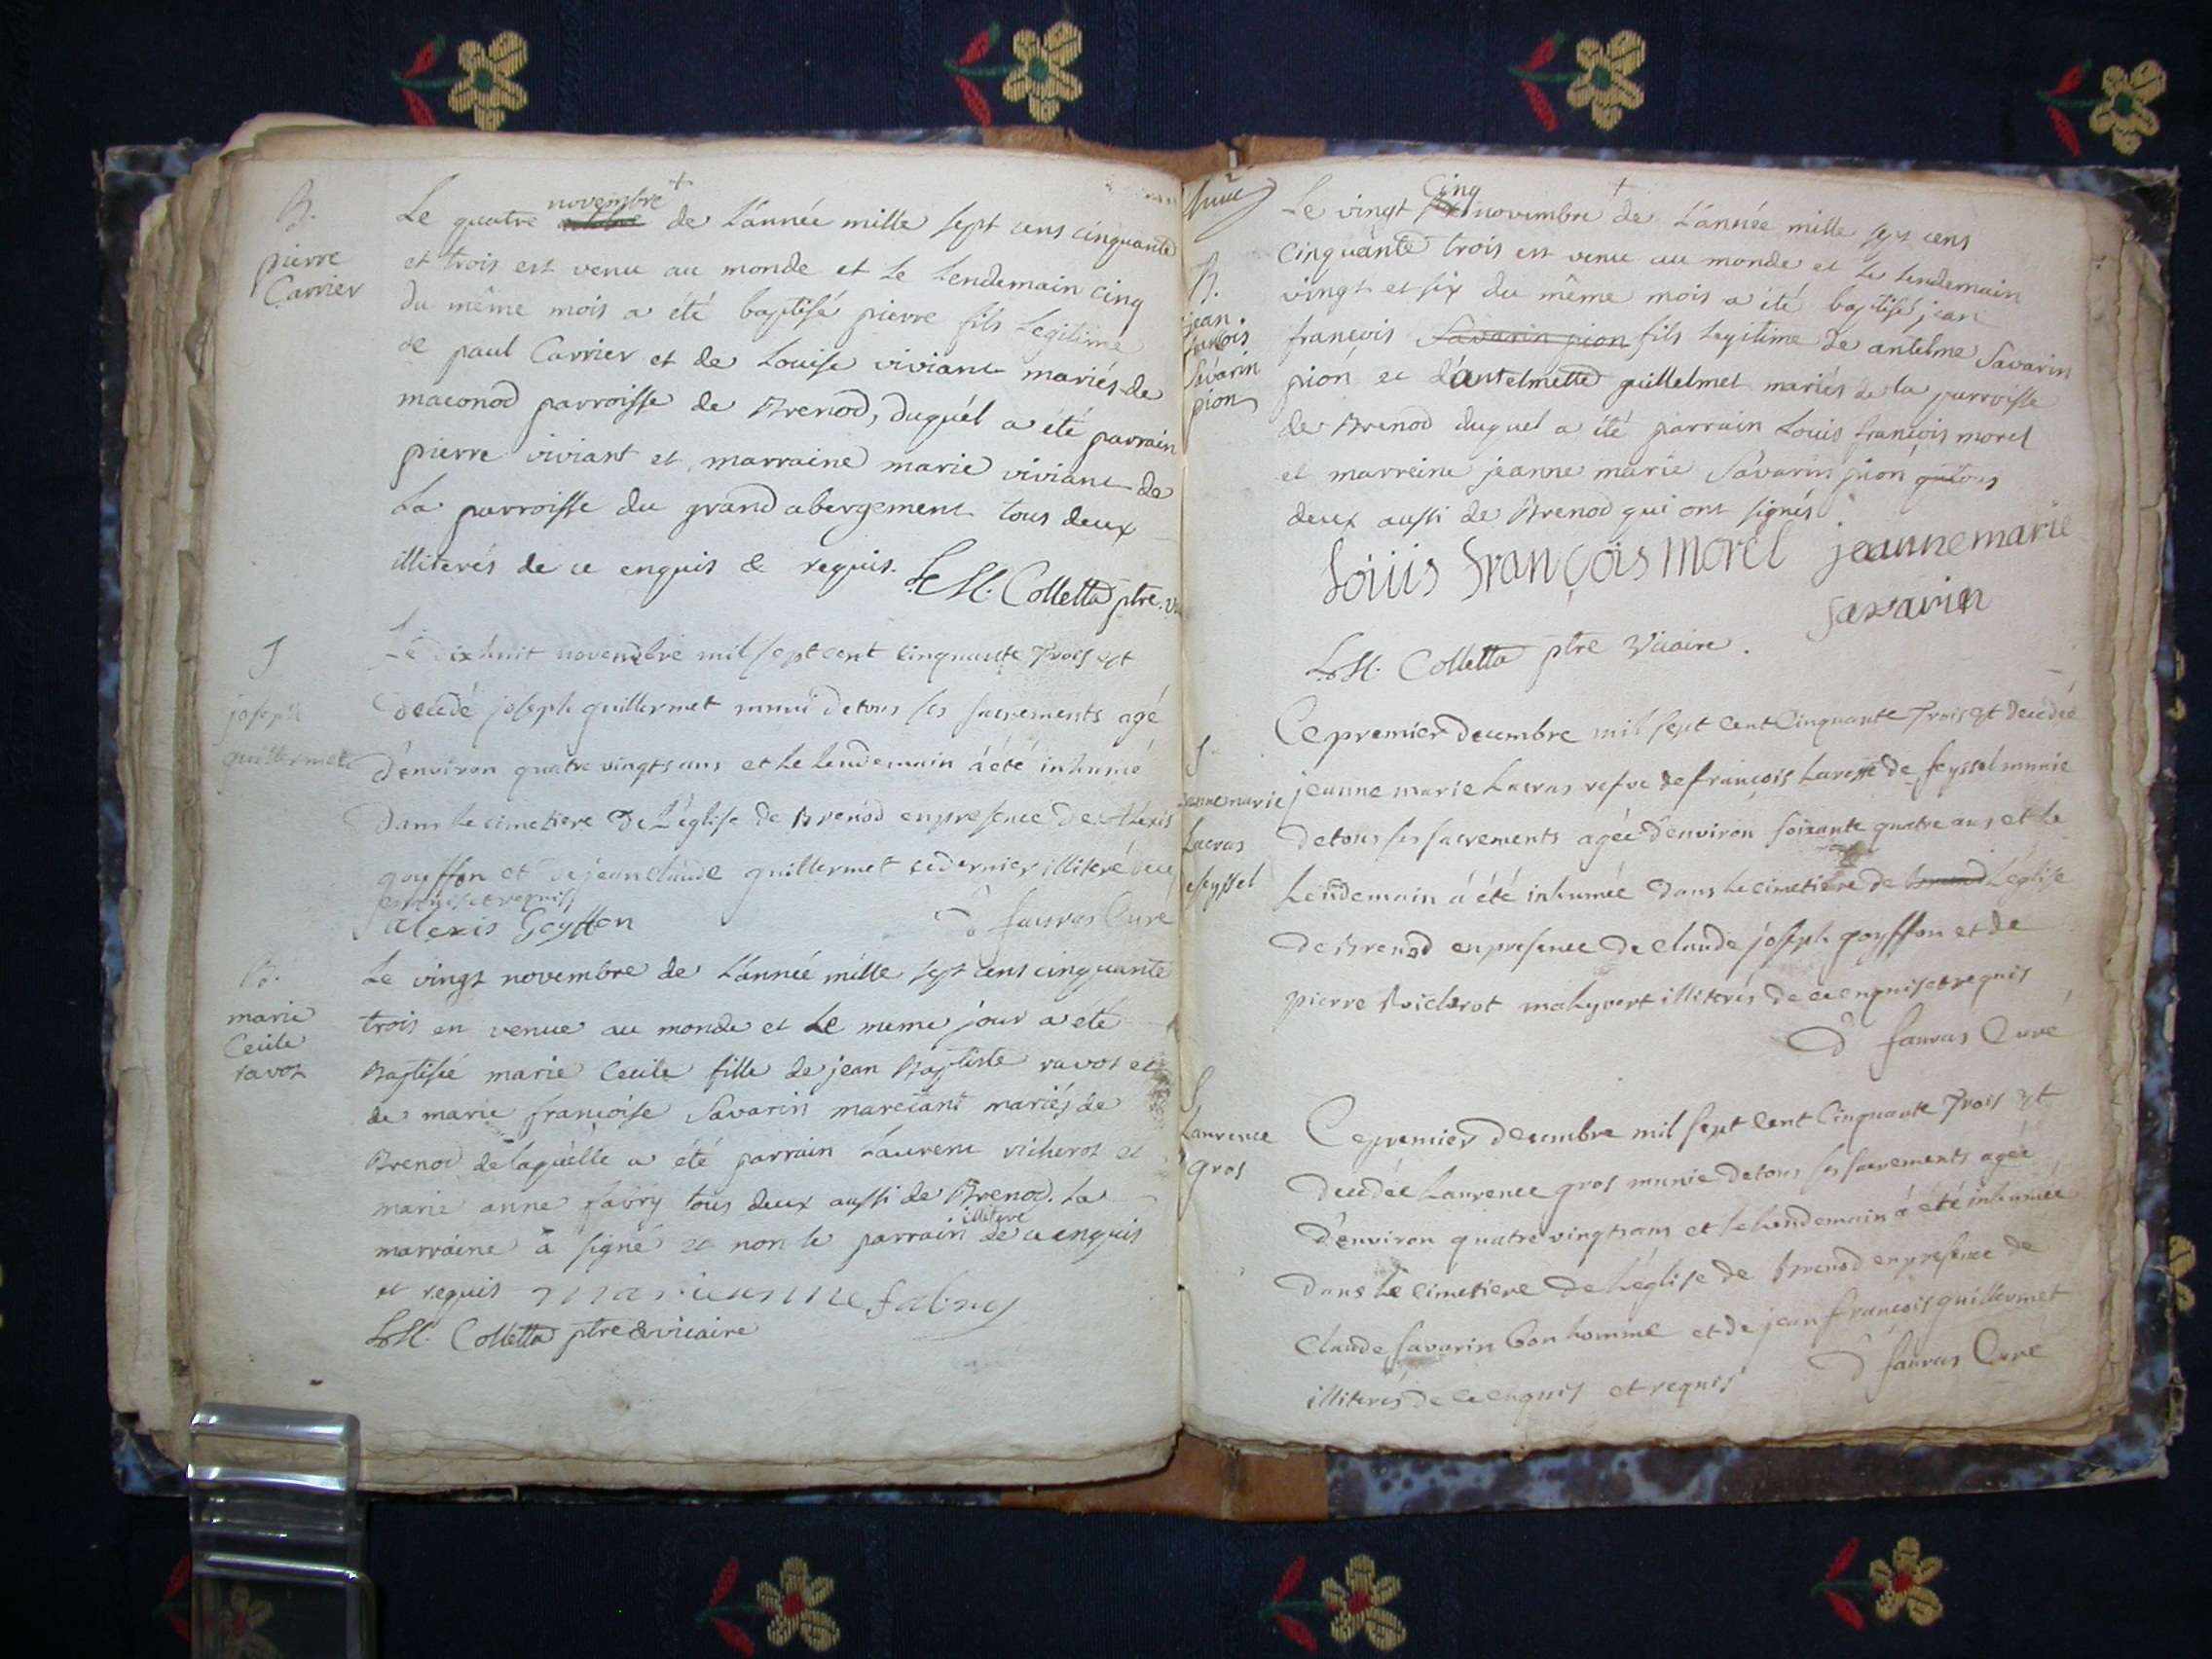 B.
pierre
Carrier
novembre
Le quatre de L'année mille sept cens cinquante
et trois est venu au monde et Le Lendemain cinq
du même mois a été baptisé pierre fils Legitime
de paul Carrier et de Louise viviant mariés de
maconod parroisse de Brenod, duquél a été parrain
pierre viviant et marraine marie viviant de
La parroisse du grand abergement tous deux
illiterés de ce enquis & requis. Colletta ptre
S
joseph
guillermet
Le dix huit novembre mil sept cent cinquante Trois est
decedé joseph guillermet muni de tous ses sacrements agé
d'environ quatre vingts ans et Le Lendemain á été inhumé
Dans Le cimetiere De L'eglise de Brenod en presence de Alexis
gouffon et de jean claude guillermet ce dernier illiteré de ce
enquis et requis
alexis Goyffon D fauras Curé
B.
marie
Cecile
ravot
Le vingt novembre de L'année mille sept cens cinquante
trois en venue au monde et Le meme jour a été
Baptisée marie Cecile fille de jean Baptiste ravot et
de marie françoise Savarin marciant mariés de
Brenod de laquélle a été parrain Laurent vicherot et
marie anne fabry tous deux aussi de Brenod. La
marraine a signé et non le parrain illiteré de ce enquis
et requis marie anne fabry
Colletta ptre & vicaire
B.
jean
françois
Savarin
pion
Cinq
Le vingt novembre de L'année mille sept cens
Cinquante trois est venu au monde et Le Lendemain
vingt et six du même mois a été baptisé jean
françois Savarin pion fils Legitime de antelme Savarin
pion et d'antelmette guillelmet mariés de la parroisse
de Brenod duquel a été parrain Louis françois morel
et marreine jeanne marie Savarin pion
deux aussi de Brenod qui ont signés
Loüis François Morel jeanne marie
savarin
Colletta ptre Vicaire.
S
jeanne marie
Lacras
seyssel
Ce premier decembre mil sept Cent Cinquante Trois est decedée
jeanne marie Lacras vefve de françois de seyssel munie
de tous ses sacrements agée d'environ soixante quatre ans et Le
Lendemain á été inhumée Dans Le cimetiére de L'eglise
de Brenod en presence De claude joseph goyffon et de
pierre illiterés De ce enquis et requis
D fauras Curé
S
Laurence
gros
Ce premier decembre mil sept Cent Cinquante Trois est
decedée Laurence gros munie De tous ses sacrements agée
D'environ quatre vingts ans et le Lendemain á été inhumée
Dans Le cimetiere de L'église de Brenod en presence de
Claude Savarin bon homme et de jean françois guillermet
illiterés De ce enquis et requis D fauras Curé